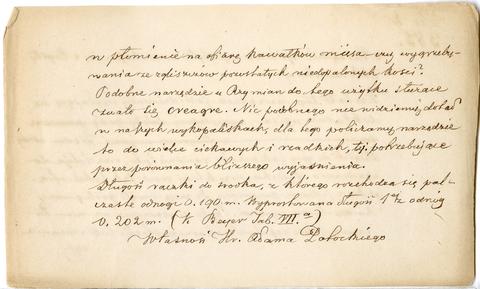 w płomienie na ofiarę kawałków mięsa – czy wygrzeby-
wania ze zgliszczów pozostałych niedopalonych kości?
Podobne narzędzie u Rzymian do tego użytku służące
zwało się creagre. Nic podobnego nie widzieliśmy dotąd
w naszych wykopaliskach, dla tego policzamy narzędzie
to do wielce ciekawych i rzadkich, tyj. potrzebujące
przez porównania bliższego wyjaśnienia.
Długość rączki do środka, z którego rozchodzą się pal-
czaste odnogi 0.190 m. Wyprostowana długość 1ej z odnóg
0.202 m. (K. Beyer Tab. VII.a)
Własność Hr. Adama Potockiego